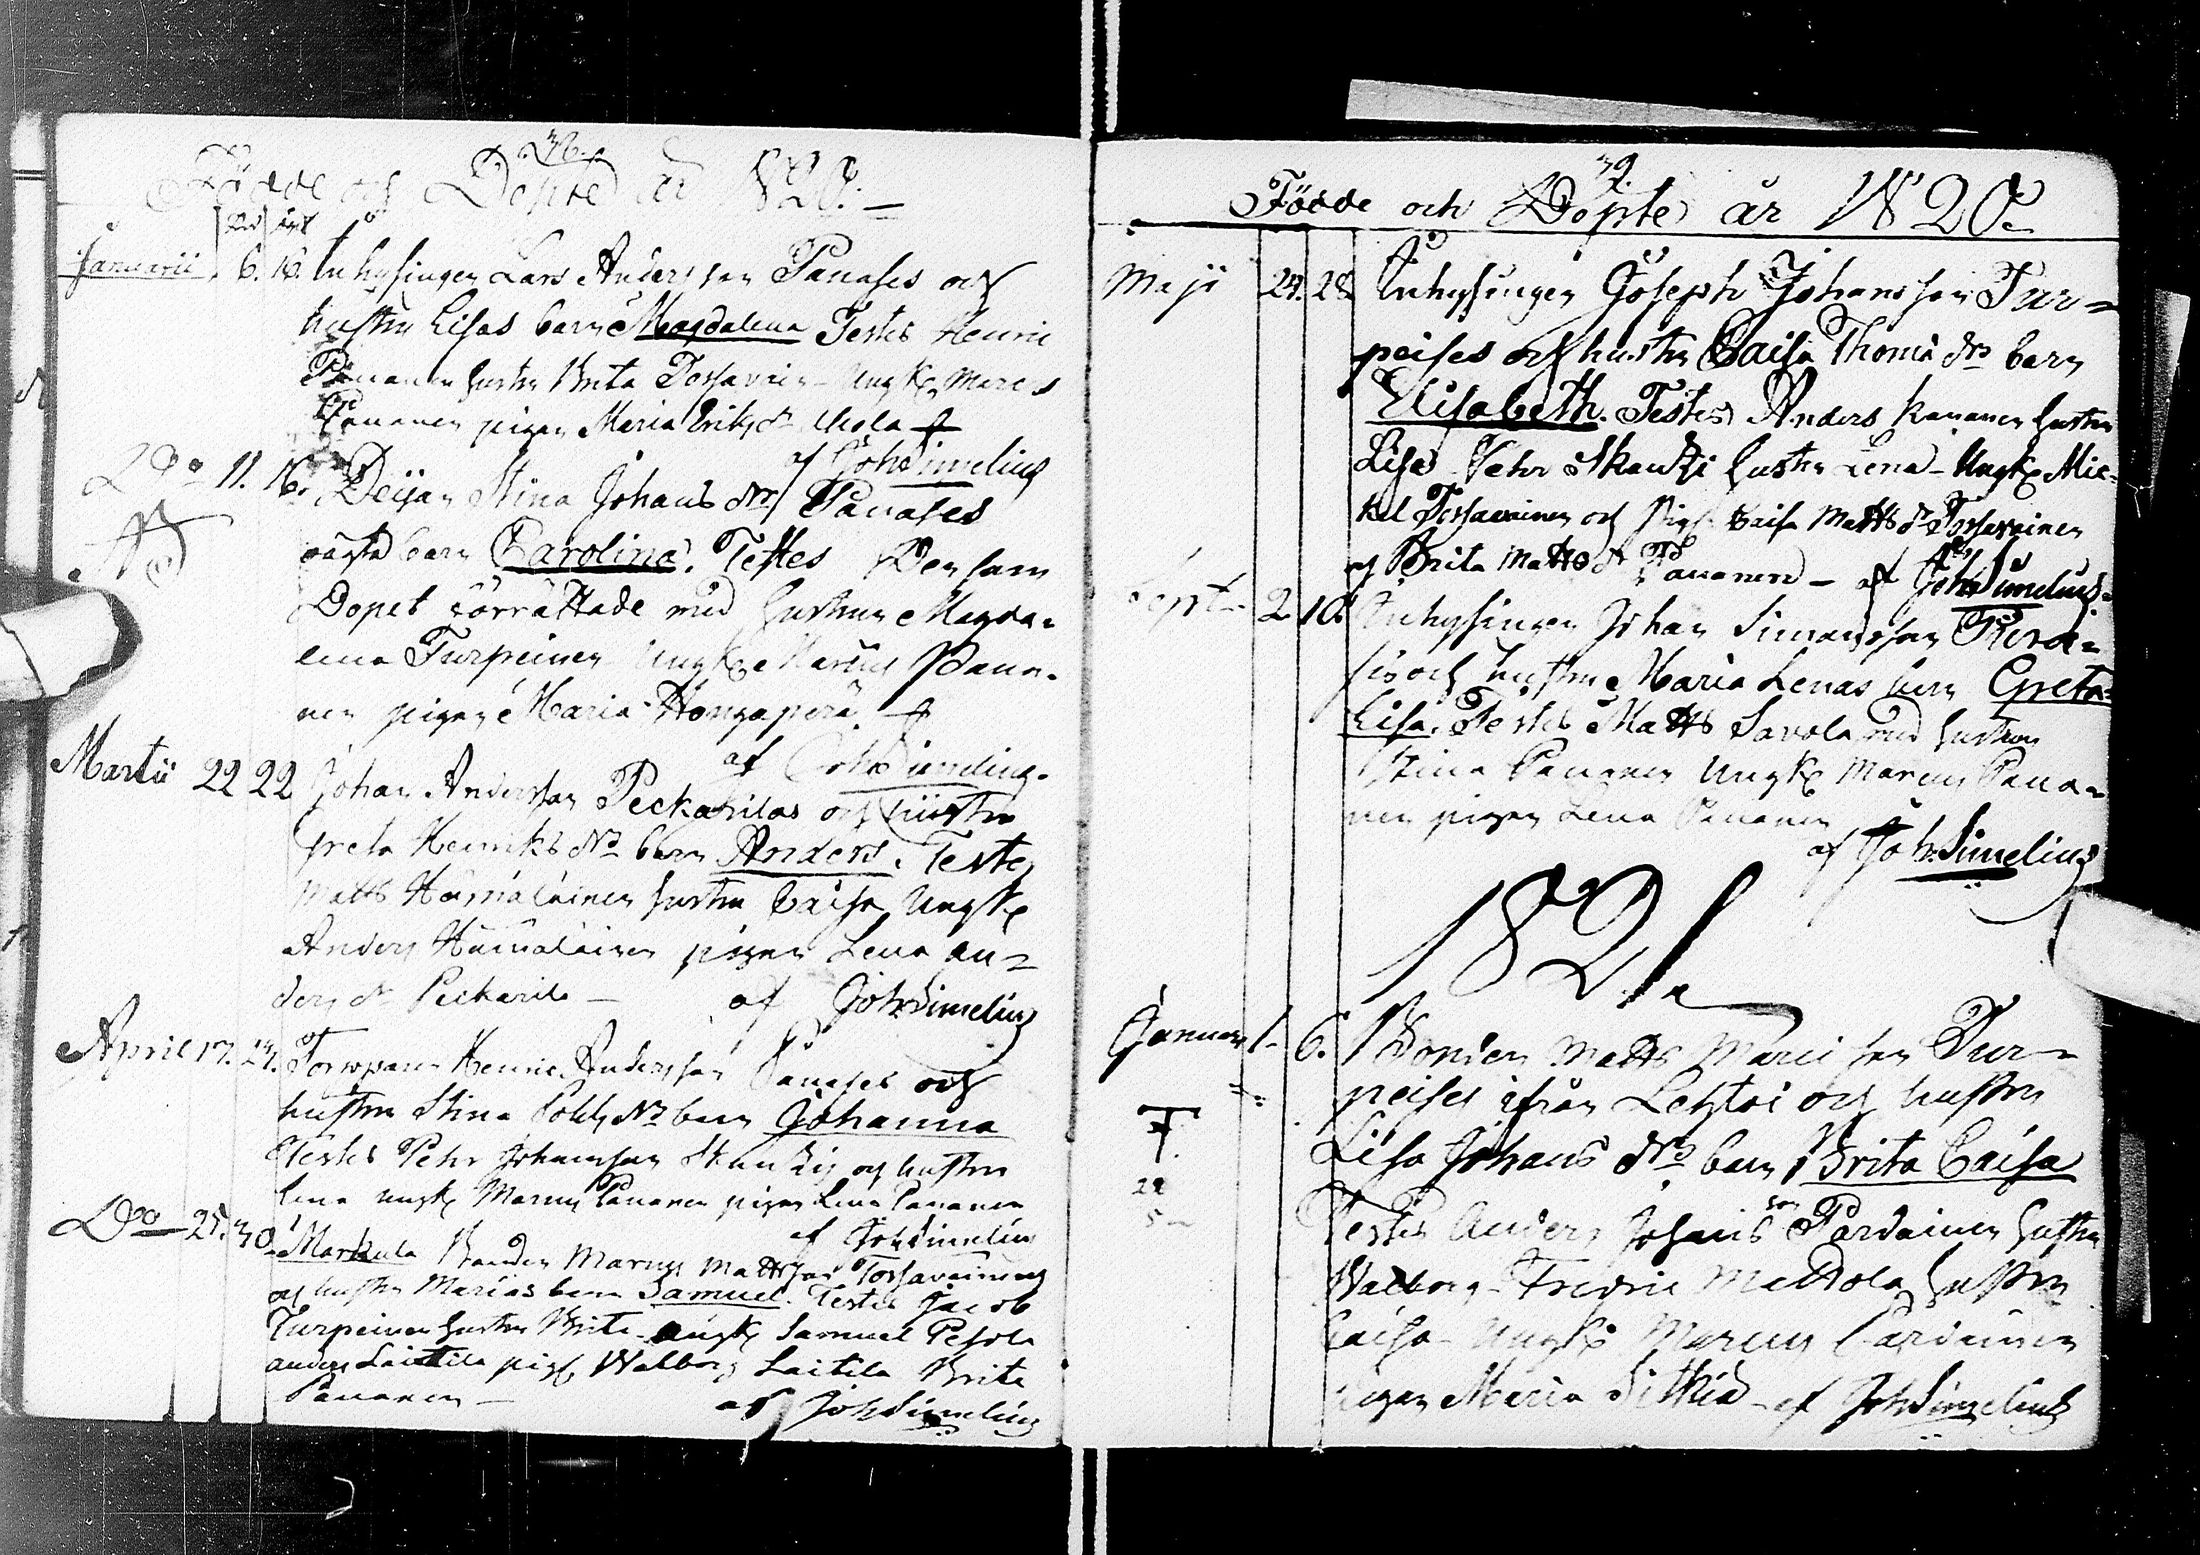 Födde och Döpte år 1820.
Januarii 6. 16. Inhysingen Lars Andersson Panases och
hustru Lisas barn Magdalena Testes Henric
Pananen hustru Brita Tossavain Ungk. Marcus
Pananen pigan Maria Eriksdr
af Joh Simelius
Do 11. 16. Deijan Stina Johans dr Panases
oägta barn Carolina. Testes Densam
Dopet förrättade med hustrun Magda-
lena Turpeinen Ungk Marcus Pana-
nen pigan Maria Hongaperä
af Joh Simelius
Martii 22 22 Johan Andersson Peckarilas och hustru
Greta Henriks dr barn Anders. Testes
Matts Hämäläinen hustru Caisa Ungk
Anders Hämäläinen pigan Lena An-
ders dr Peckarila – af Joh Simelius
April 17. 24. Torpparen Henric Andersson Panases och
hustru Stina dr barn Johanna
Testes Petr Johansson och hustru
Lena ungk Marcus Pananen pigan Lena Pananen
af Joh Simelius
Do – 25. 30. Markula Bonden Marcus Mattsson Tossavainens
och hustru Marias barn Samuel. Testes Jacob
Turpeinen hustru Brita Ungk Samuel Pesola
Anders Laitila pig. Walborg Laitila Brita
Pananen – af Joh Simelius
39.
Födde och Döpte år 1820.
Maji 24. 28. Inhysingen Joseph Johansson Tur-
peises och hustru Caisa Thomæ drs barn
Elisabeth. Testes Anders Kananen hustru
Lisa Petr Skantzi hustru Lena – Ungk Mic-
kel Tossavainen och Pig. Caisa Matts dr Tossavainen
och Brita Matts dr Pananen – af Joh Simelius.
Sept. 2 10. Inhysingen Johan Simonsson
och hustru Maria Lenas barn Greta
Lisa. Testes Matts Savola med hustrun
Stina Pananen Ungk Marcus Pana-
nen pigan Lena Pananen
af Joh. Simelius
1821.
Januari 1. 6. Bonden Matts Marcisson Tur-
peises ifrån Lehtoi och hustru
Lisa Johans drs barn Brita Caisa
Testes Anders Johansson Pardainen hustru
Walborg – Fredric Mattola hustru
Caisa – Ungk Marcus Pardainen
pigan Maria – af Joh Simelius